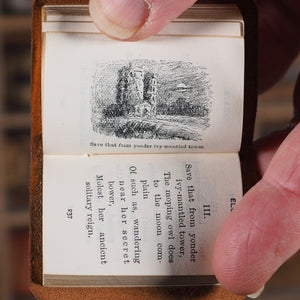 Save that from yonder ivy-mantled tower.
EL
III.
Save that from yonder
ivy-mantled tower,
The moping owl does
to the moon com-
plain
Of such as, wandering
near her secret
bower,
Molest her ancient
solitary reign.
137